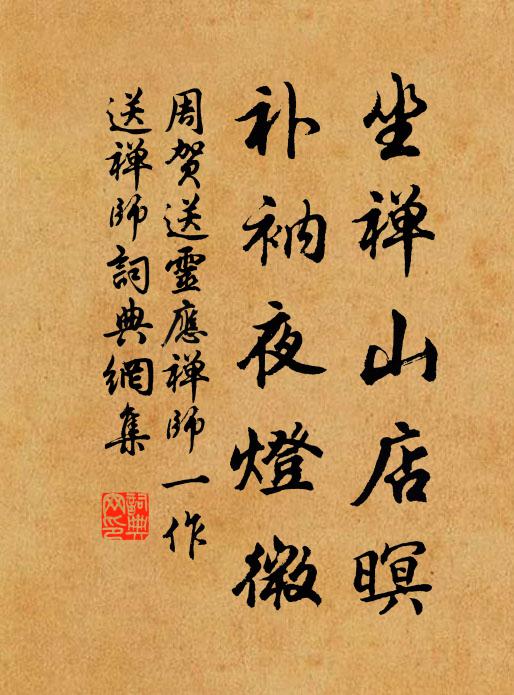 坐禅山店暝
补衲夜燈微
周贺送靈應禅师一作
送禅师詞典網集
詞典网印